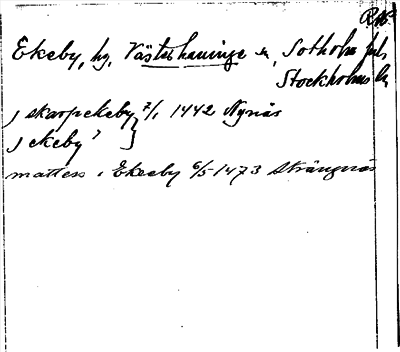 Ekeby, hg, Västerhaninge sn, Sotholms
Stockholms ln
j skarpekeby 7/1 1442 Nynäs
j ekeby
mattes i Ekeby 6/5 1473 Strängnäs